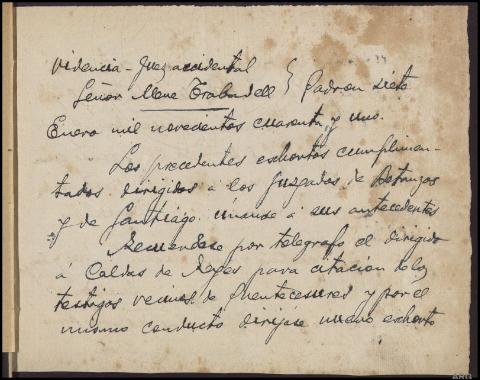 videncia - Juez accidental
Señor Mene Trabadell } Padron siete
Enero mil novecientos cuarenta y uno.
Los precedentes exhortos cumplimen-
tados dirigidos a los Juzgados de Betanzos
y de Santiago únanse a sus antecedentes
Recuerdese por telegrafo el dirigido
á Caldas de Reyes para citacion de los
testigos vecinos de Puentecesures y por el
mismo conducto dirijase nuevo exhorto